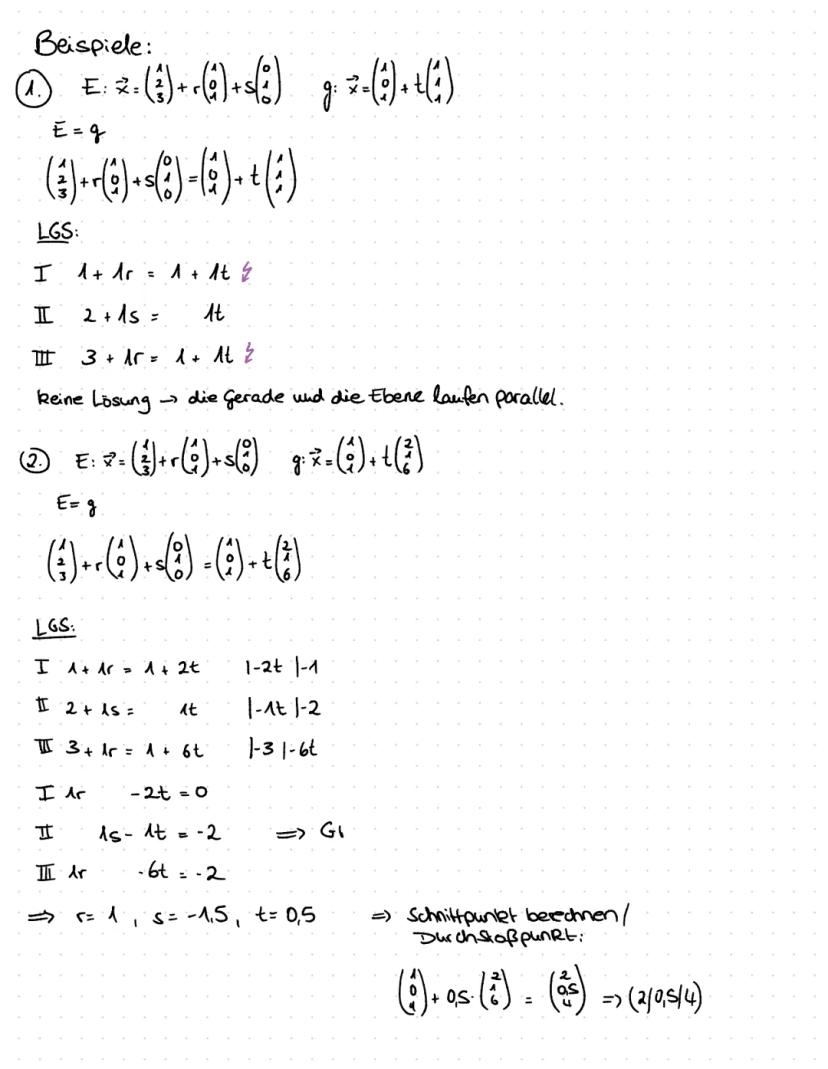 Beispiele:
1. E: x⃗ = (1 2 3) + r(1 0 1) + s(0 1 0) g: x⃗ = (1 0 1) + t(1 1 1)
E = g
(1 2 3) + r(1 0 1) + s(0 1 0) = (1 0 1) + t(1 1 1)
LGS:
I 1 + 1r = 1 + 1t ↯
II 2 + 1s = 1t
III 3 + 1r = 1 + 1t ↯
keine Lösung → die Gerade und die Ebene laufen parallel.
2. E: x⃗ = (1 2 3) + r(1 0 1) + s(0 1 0) g: x⃗ = (1 0 1) + t(2 1 6)
E = g
(1 2 3) + r(1 0 1) + s(0 1 0) = (1 0 1) + t(2 1 6)
LGS:
I 1 + 1r = 1 + 2t |-2t |-1
II 2 + 1s = 1t |-1t |-2
III 3 + 1r = 1 + 6t |-3 |-6t
I 1r -2t = 0
II 1s - 1t = -2 ⇒ G
III 1r -6t = -2
⇒ r = 1 , s = -1,5 , t = 0,5 ⇒ Schnittpunkt berechnen /
Durchstoßpunkt:
(1 0 1) + 0,5 · (2 1 6) = (2 0,5 4) ⇒ (2/0,5/4)